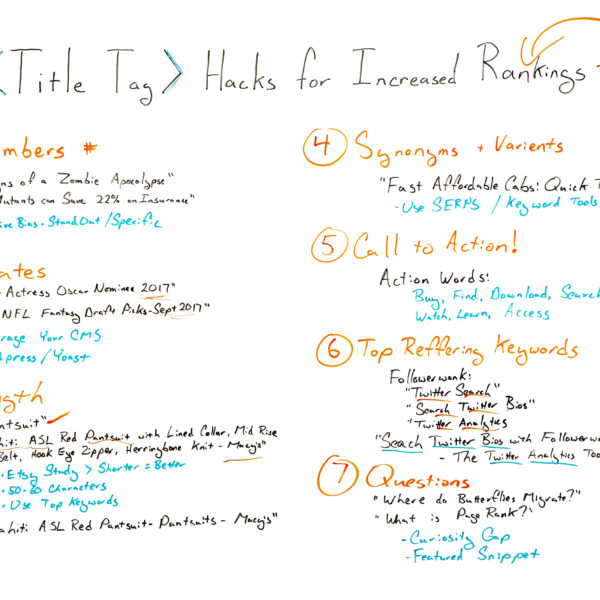 <Title Tag> Hacks for Increased Rankings
mbers #
ns of a Zombie Apocalypse"
Mutants can Save 22% on Insurance"
ive Bias - Stand Out / Specific
ates
Actress Oscar Nominee 2017"
NFL Fantasy Draft Picks - Sept 2017"
rage Your CMS
press / Yoast
ngth
ntsuit"
hiti: ASL Red Pantsuit with Lined Collar, Mid Rise
Belt, Hook Eye Zipper, Herringbone Knit - Macy's"
• Etsy Study > Shorter = Better
• 50-60 Characters
• Use Top Keywords
ahiti: ASL Red Pantsuit - Pantsuits - Macy's"
4 Synonyms + Varients
"Fast Affordable Cabs: Quick T
- Use SERPS / Keyword Tools
5 Call to Action!
Action Words:
Buy, Find, Download, Search
Watch, Learn, Access
6 Top Reffering Keywords
Followerwonk:
"Twitter Search"
"Search Twitter Bios"
"Twitter Analytics
"Seach Twitter Bios with Followerw
- The Twitter Analytics Too
7 Questions
"Where do Butterflies Migrate?"
"What is Page Rank?"
- Curiosity Gap
- Featured Snippet